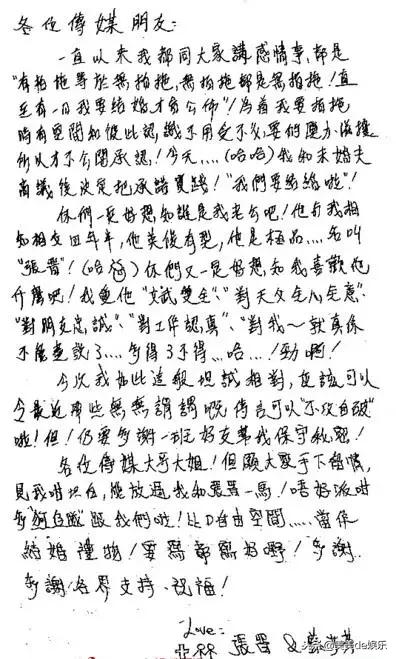 各位傳媒朋友：
一直以來我都同大家講感情事，都是
"有拍拖等於無拍拖，無拍拖都是無拍拖！直
至有一日我要結婚才會公佈"！為着我要拍拖
時有空間和彼此認識不用受不必要的壓力
所以才不公開承認！今天....(哈哈)我和未婚夫
商議後決定把承諾實踐！"我們要結婚啦"！
你們一定好想知誰是我老公吧！他與我相
知相交四年半，他英俊有型，他是極品....名叫
"張晉"！(哈哈)你們又一定好想知我喜歡他
什麼吧！我愛他"文武雙全"、"對天父全心全意"、
"對朋友忠誠"、"對工作認真"、"對我～就真係
不能盡說了....多得了不得...哈....！勁啊！
今次我如此這般坦誠相對，應該可以
令最近那些無無謂謂嘅傳言可以"不攻自破"
啦！但！仍要多謝一班好友幫我保守秘密！
各位傳媒大哥大姐！但願大家手下留情，
見我咁坦白，能放過我和張晉一馬！唔好派咁
多"狗仔隊"跟我們啦！比D自由空間.....當係
結婚禮物！要寫都寫好嘢！多謝
多謝各界支持、祝福！
Love:
張晉 & 蔡少芬
头条@美美de娱乐